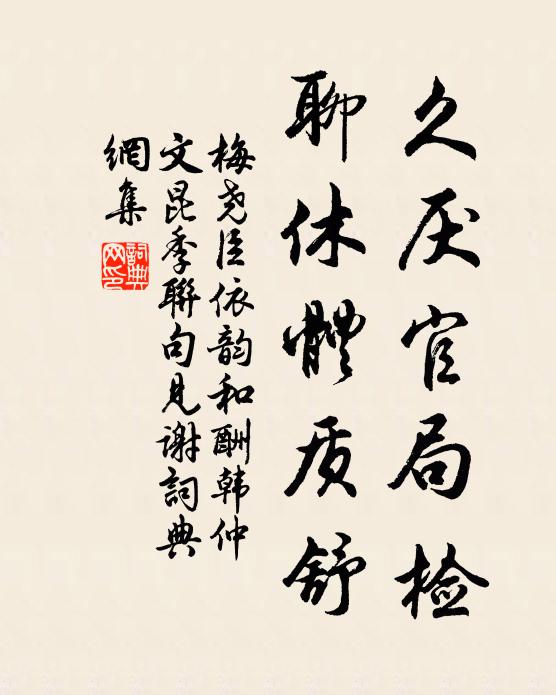 久厌官局检
聊休體质舒
梅尧臣依韵和酬韩仲
文昆季聯句见谢詞典
網集
詞典網印